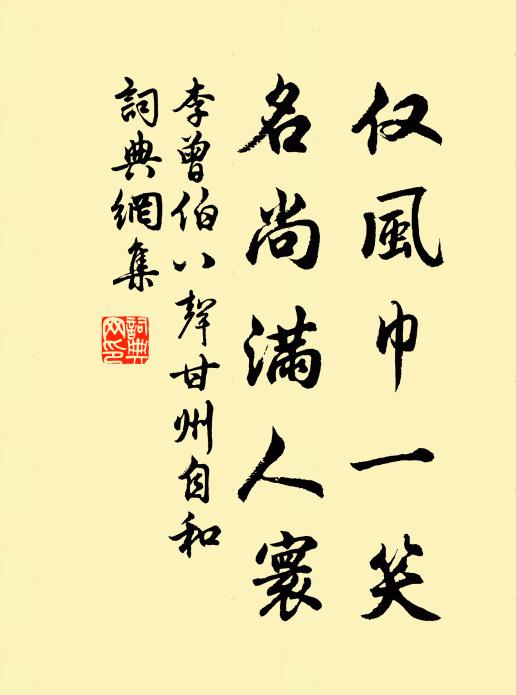 仅風巾一笑
名尚滿人寰
李曾伯八聲甘州自和
詞典網集
詞典網印